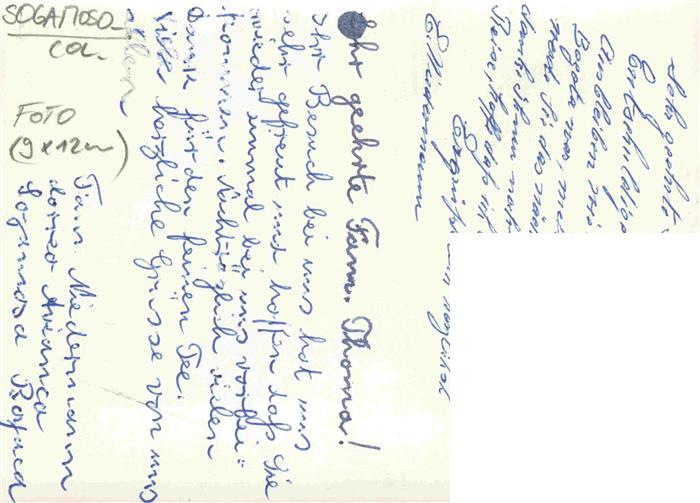 SOGAMOSO
CA.
FOTO
(9 x 12 cm)
Sehr geehrte Fam. Thoma!
Ihr Besuch bei uns hat uns
sehr gefreut und hoffen daß Sie
wieder einmal bei uns vorbei=
kommen. Nachträglich vielen
Dank für den feinen Tee.
Viele herzliche Grüsse von uns
allen
Fam. Niedermann
Avianca
Sogamoso Boyaca
Sehr geehrte
Ausbleiben
Bogota war,
Reise, hoffe daß ich
E. Niedermann